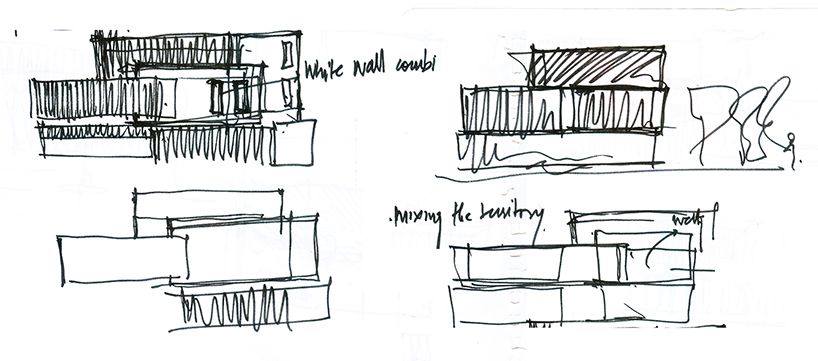 White wall combi
.mixing the territory.
wall